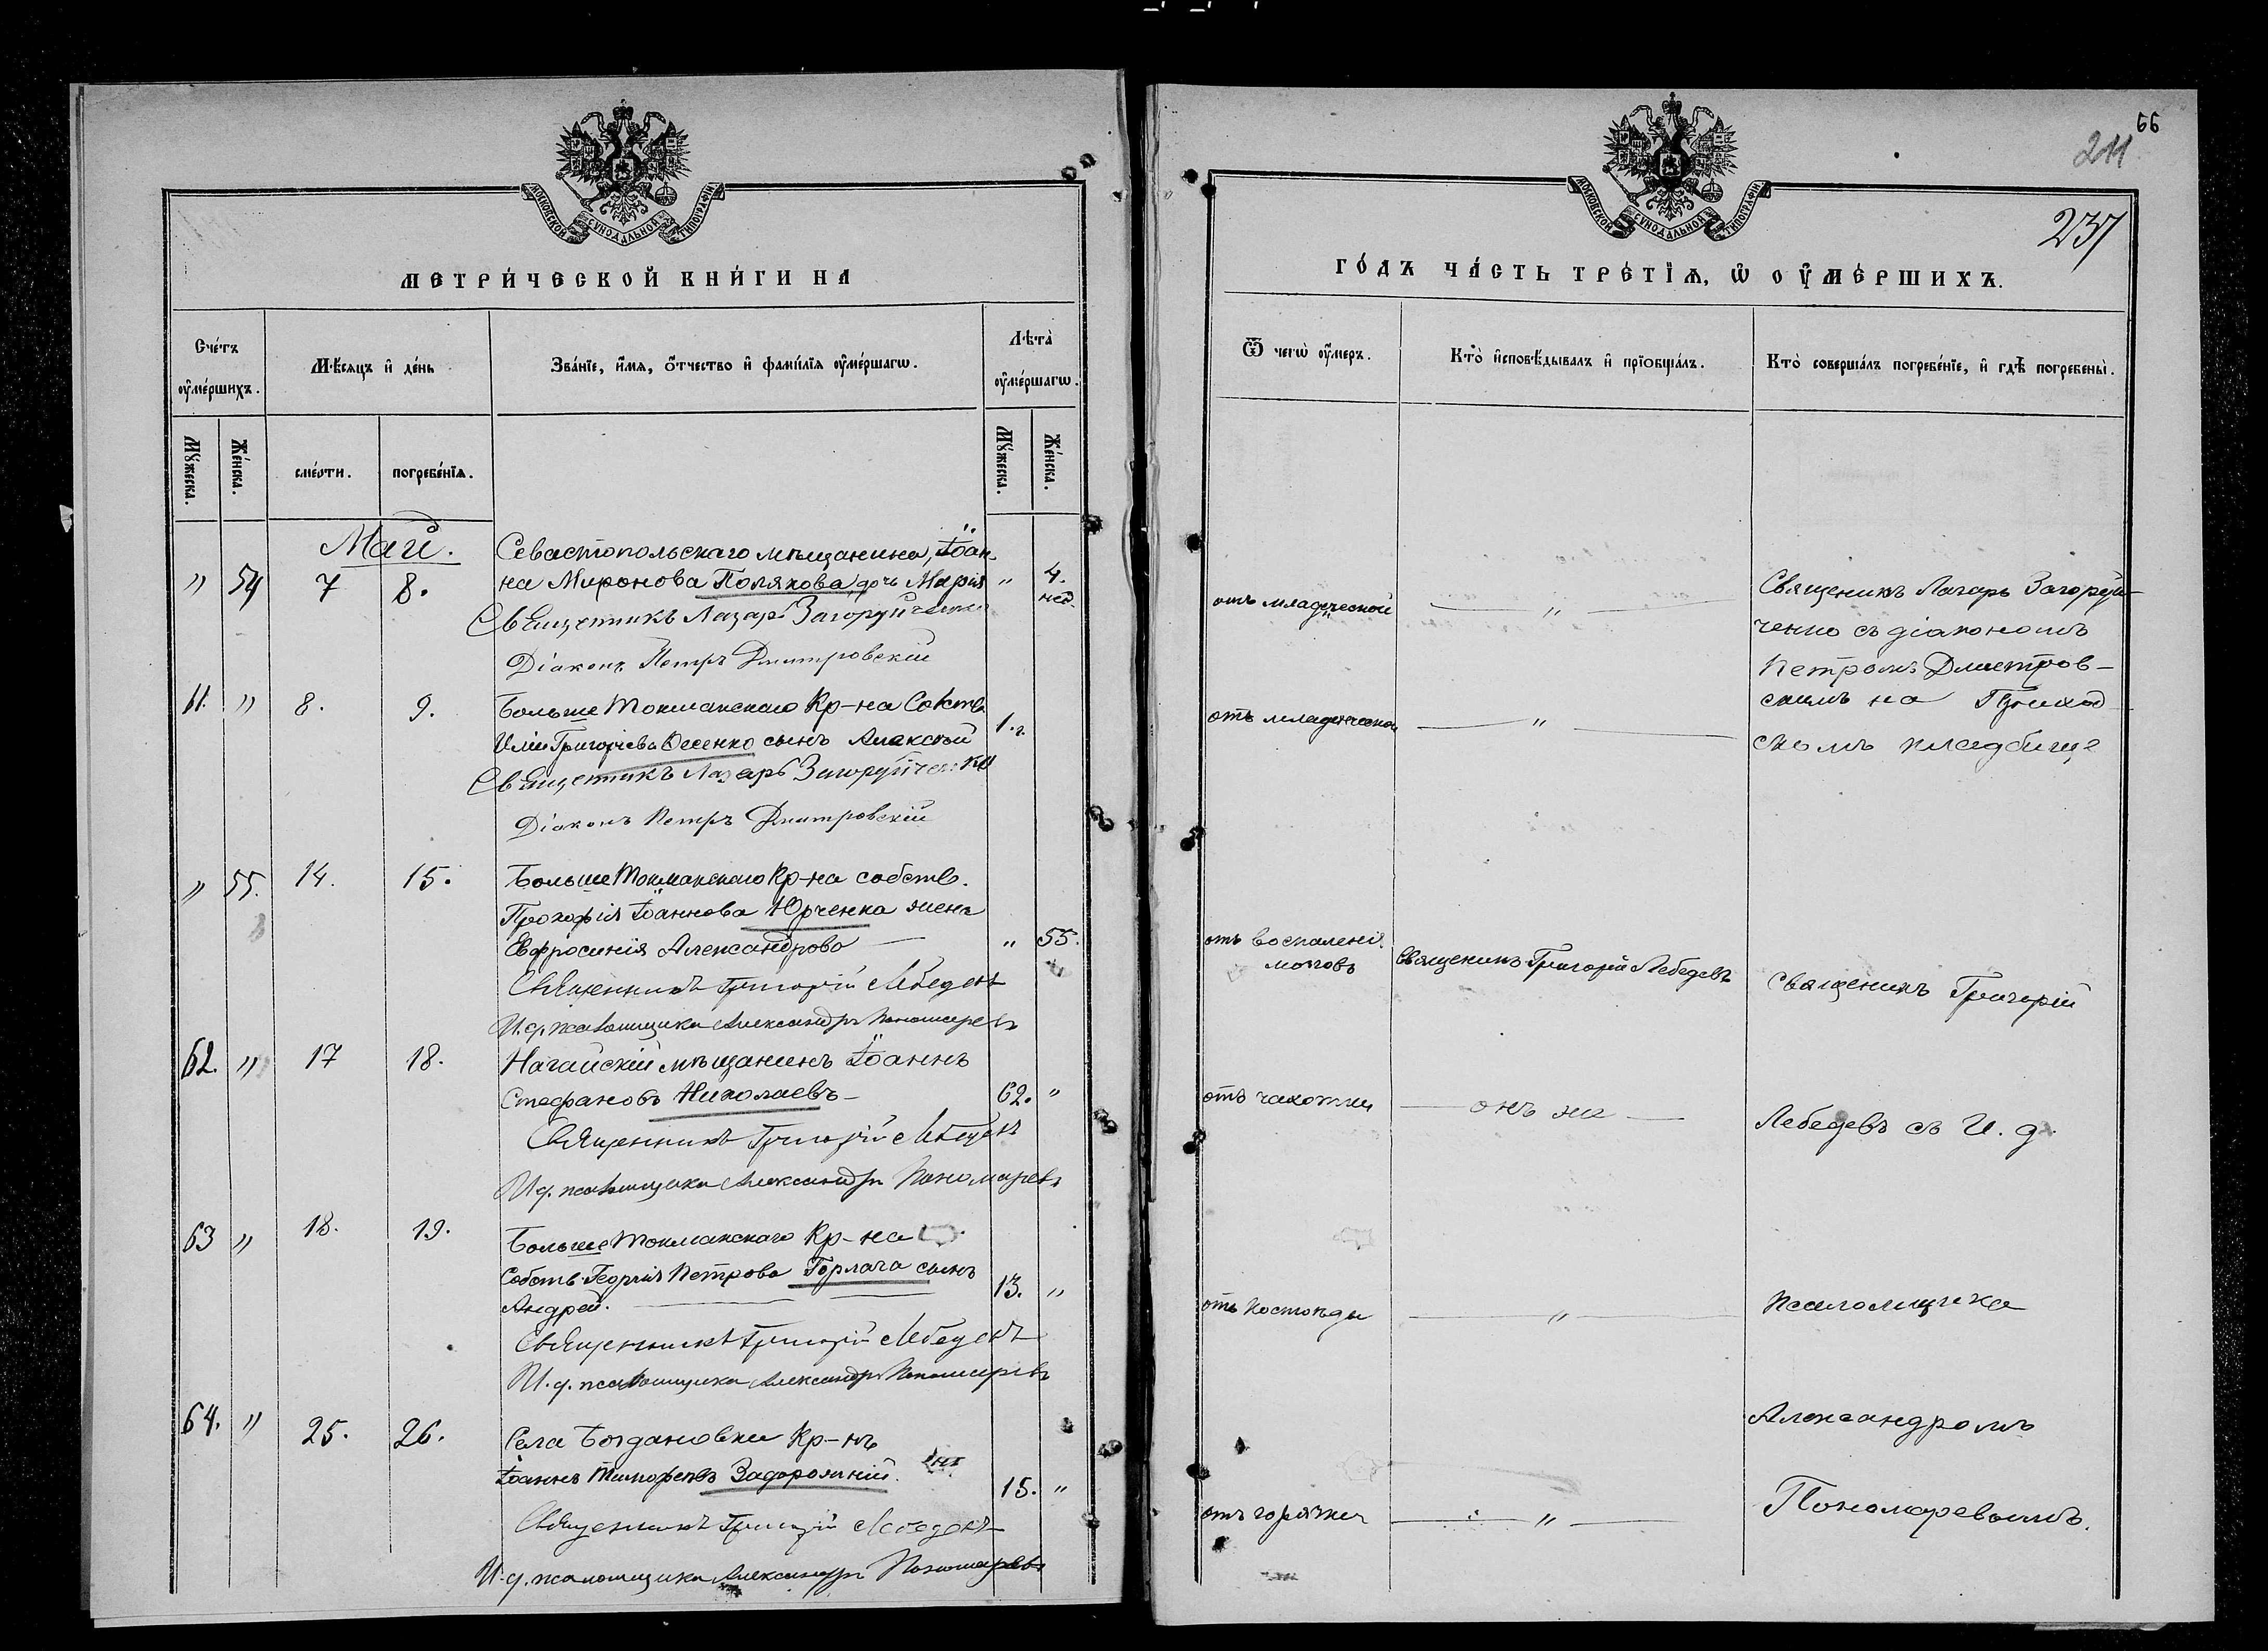 МОСКОВСКОЙ СУНОДАЛЬНОЙ ТИПОГРАФІИ
МЕТРИ́ЧЕСКОЙ КНИ́ГИ НА
Сче́тъ ᲂу҆ме́ршихъ.
Мѣ́сяцъ и҆ де́нь
Зва́нїе, и҆́мя, ѻ҆́тчество и҆ фами́лїя ᲂу҆ме́ршагѡ.
Лѣта̀ ᲂу҆ме́ршагѡ.
Мꙋ́жеска.
Же́нска.
сме́рти.
погребе́нїѧ.
Мꙋ́жеска.
Же́нска.
Май.
Севастопольскаго мѣщанина, Іоан
" 54 7 8. на Миронова Полякова дочь Марія " 4. нед.
Священникъ Лазарь Загоруйченко
Діаконъ Петръ Дмитровскій
61. " 8. 9. Больше Токмакскаго Кр-на Собств.
Иліи Григоріева сынъ Алексѣй 1. г.
Священникъ Лазарь Загоруйченко
Діаконъ Петръ Дмитровскій
" 55. 14. 15. Больше Токмакскаго Кр-на собств.
Прокофія Іоаннова Юрченка жена
Евфросинія Александрова " 55.
Священникъ Григорій Лебедевъ
И. д. псаломщика Александръ Пономаревъ
62. " 17 18. Нагайскій мѣщанинъ Іоаннъ
Стефановъ Николаевъ 62. "
Священникъ Григорій Лебедевъ
И. д. псаломщика Александръ Пономаревъ
63 " 18. 19. Больше Токмакскаго Кр-на
Собств. Георгія Петрова Горлача сынъ 13. "
Андрей.
Священникъ Григорій Лебедевъ
И. д. псаломщика Александръ Пономаревъ
64. " 25. 26. Села Богдановки Кр-нъ
Іоаннъ Тимофеевъ Задорожній. 15. "
Священникъ Григорій Лебедевъ
И. д. псаломщика Александръ Пономаревъ
66
211
237
МОСКОВСКОЙ СУНОДАЛЬНОЙ ТИПОГРАФІИ
ГО́ДЪ ЧА́СТЬ ТРЕ́ТЇѦ, Ѡ҆ ОУ҆МЕ́РШИХЪ.
Ѿ чегѡ̀ ᲂу҆́меръ.
Кто̀ и҆сповѣ́дывалъ и҆ прїѻбща́лъ.
Кто̀ соверша́лъ погребе́нїе, и҆ гдѣ̀ погребены̀.
отъ младенческой "
Священикъ Лазарь Загоруй-
ченко съ діакономъ
Петромъ Дмитров-
скимъ на Приход
скомъ кладбище
отъ младенческой "
отъ воспаленія
мозговъ
Священикъ Григорій Лебедевъ
Священикъ Григорій
отъ чахотки
онъ же
Лебедевъ съ И. д.
отъ костоѣды "
псаломщика
Александромъ
отъ горячки "
Пономаревымъ.